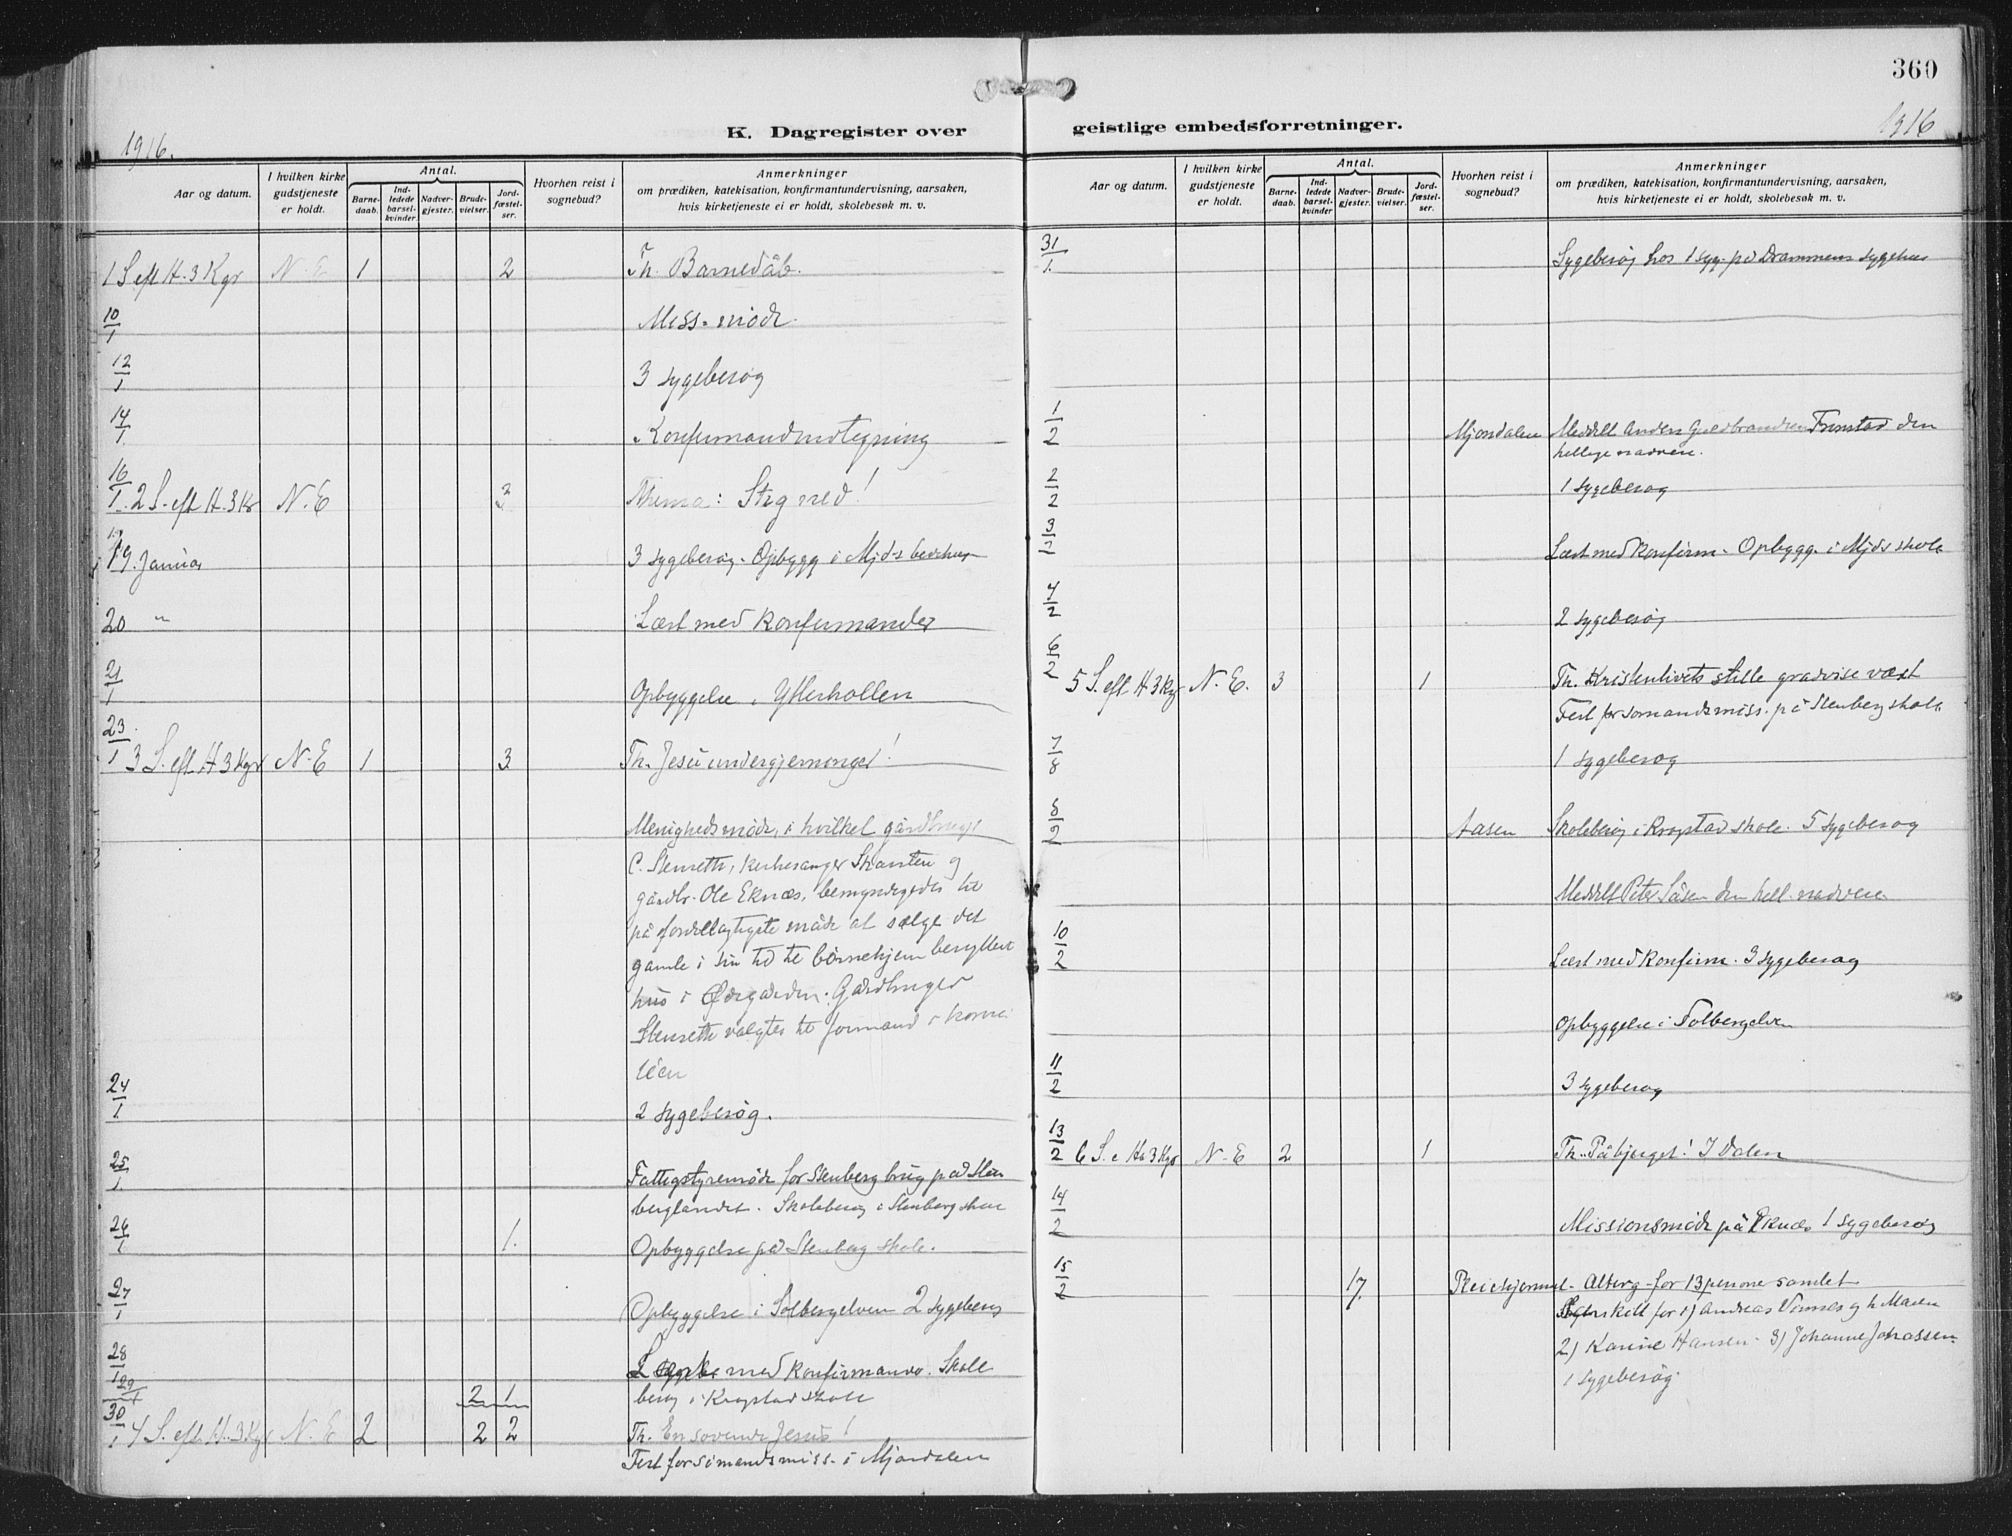 360
1916.
K. Dagregister over geistlige embedsforretninger.
1916
Aar og datum.
I hvilken kirke gudstjeneste er holdt.
Antal.
Barnedaab.
Indledede barselkvinder
Nadvergjester.
Brudevielser.
Jordfæstelser.
Hvorhen reist i sognebud?
Anmerkninger
om prædiken, katekisation, konfirmantundervisning, aarsaken,
hvis kirketjeneste ei er holdt, skolebesøk m. v.
1 S eft H. 3 Kgr N. E 1 2 Th. Barnedåb.
10/1 Miss. møde.
12/1 3 sygebesøg
14/1 Konfirmandindtegning
16/1. 2 S. eft H. 3 Kr N. E 3 Thema: Stig ned!
19. Januar 3 sygebesøg. Opbygg i Mjds bedehus
20 " Læst med konfirmander
21/1 Opbyggelse i Ytterkollen
23/1 3 S. eft H 3 Kgr N. E 1 3 Th. Jesu undergjerninger!
Menighedsmøde, i hvilket gårdbruger
C. Stenseth, kirkesanger Skansten og
gårdbr. Ole Eknæs, bemyndigedes til
på fordelagtigste måde at sælge det
gamle i sin tid til børnehjem benyttede
hus i Ødegården. Gårdbruger
Stenseth valgtes til formand i komi-
téen
24/1. 2 sygebesøg.
25/1. Fattigstyremøde for Stenberg brug på Sten
berglandet. Skolebesøg i Stenberg skole
26/1 1. Opbyggelse på Stenberg skole.
27/1 Opbyggelse i Solbergelven 2 sygebesøg
28/1 med konfirmander. Skole
29/1 2 1 besøg i Krogstad skole
30/1 4 S. eft. H. 3 Kgr N. E 2 2 2 Th. En sovende Jesus!
Fest for sømandsmiss. i Mjøndalen
Aar og datum.
I hvilken kirke gudstjeneste er holdt.
Antal.
Barnedaab.
Indledede barselkvinder
Nadvergjester.
Brudevielser.
Jordfæstelser.
Hvorhen reist i sognebud?
Anmerkninger
om prædiken, katekisation, konfirmantundervisning, aarsaken,
hvis kirketjeneste ei er holdt, skolebesøk m. v.
31/1. Sygebesøg hos 1 syg. på Drammens sygehus
1/2 Mjøndalen Meddelt Anders Guldbrandsen den
hellige nadvere.
2/2 1 sygebesøg
3/2 Læst med konfirm. Opbygg. i Mjds skole
4/2 2 sygebesøg
6/2 5 S. eft H 3 Kgr N. E. 3 1 Th. Kristenlivets stille gradvise vækst
Fest for sømandsmiss. på Stenberg skole
7/8 1 sygebesøg
8/2 Aasen Skolebesøg i Krogstad skole. 5 sygebesøg
Meddelt Peter Åsen den hell. nadvere
10/2 Læst med konfirm. 3 sygebesøg
Opbyggelse i Solbergelven
11/2 3 sygebesøg
13/2 6 S. e H 3 Kgr N. E 2 1 Th. På bjerget! I dalen
14/2 Missionsmøde på Eknæs 1 sygebesøg
15/2 17. Altberg. for 13 personer samlet
Særskilt for 1) Andreas Vinnes og h. Maren
2) Karine Hansen 3) Johanne Johassen
1 sygebesøg.